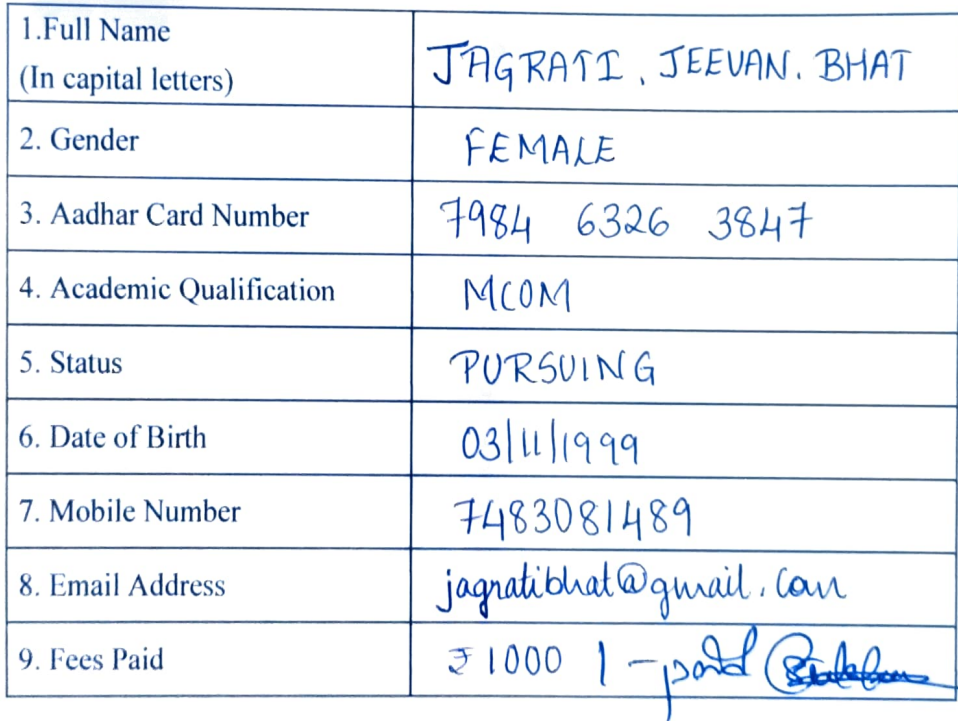 1.Full Name
(In capital letters)
JAGRATI. JEEVAN. BHAT
2. Gender
FEMALE
3. Aadhar Card Number
7984 6326 3847
4. Academic Qualification
MCOM
5. Status
PURSUING
6. Date of Birth
03/11/1999
7. Mobile Number
7483081489
8. Email Address
jagratibhat@gmail.com
9. Fees Paid
₹ 1000 /- paid